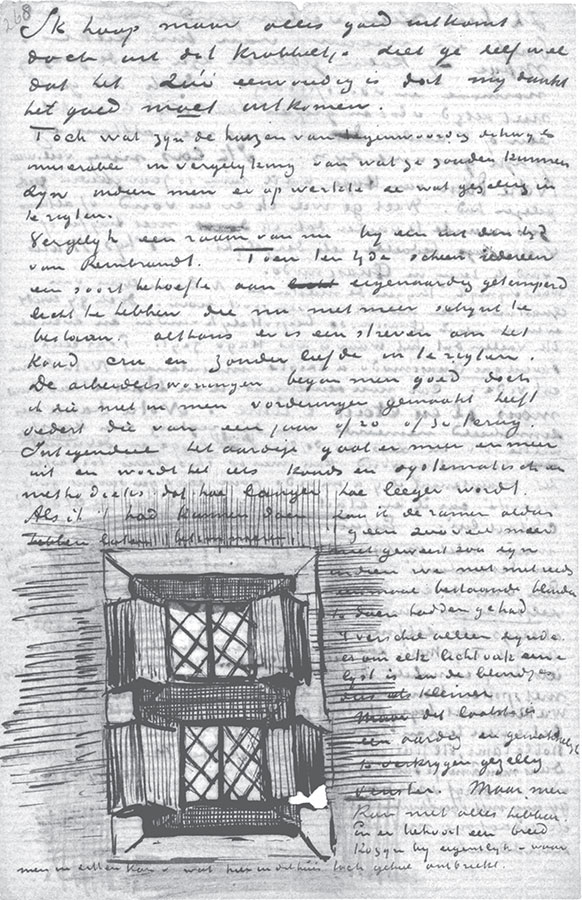 268
Ik hoop maar alles goed uitkomt
doch uit dit krabbeltje ziet ge zelf wel
dat het zóó eenvoudig is dat mij dunkt
het goed moet uitkomen.
Toch wat zijn de huizen van tegenwoordig
miserabel in vergelyking van wat ze zouden kunnen
zyn indien men er op werkte ze wat gezellig in
te rigten.
Vergelyk een raam van nu by een uit den tyd
van Rembrandt. Toen ter tyde scheen iedereen
een soort behoefte aan eigenaardig getemperd
licht te hebben die nu niet meer schynt te
bestaan. althans er is een streven om het
koud cru en zonder liefde in te rigten.
De arbeiderswoningen began men goed doch
ik zie niet in men vorderingen gemaakt heeft
sedert die van een jaar of 20 of 30 terug.
Integendeel het aardige gaat er meer en meer
uit en wordt het iets kouds en systematisch en
methodieks dat hoe langer hoe leeger wordt.
Als ik 't had kunnen doen zou ik de ramen aldus
hebben laten
geen zooveel meer
niet geweest zou zyn
indien we niet met reeds
eenmaal bestaande blinden
te doen hadden gehad
't verschil alleen zyn de
er om elk lichtvak eene
lyst is en de blindjes
dus als kleiner
Maar dit laatste is
een aardig en gemakkelyk
te verkrygen gezellig
venster. Maar men
kan niet alles hebben.
En er behoort een breed
kozyn by eigenlyk - waar
men in zitten kan - wat hier in dit huis toch geheel ontbreekt.